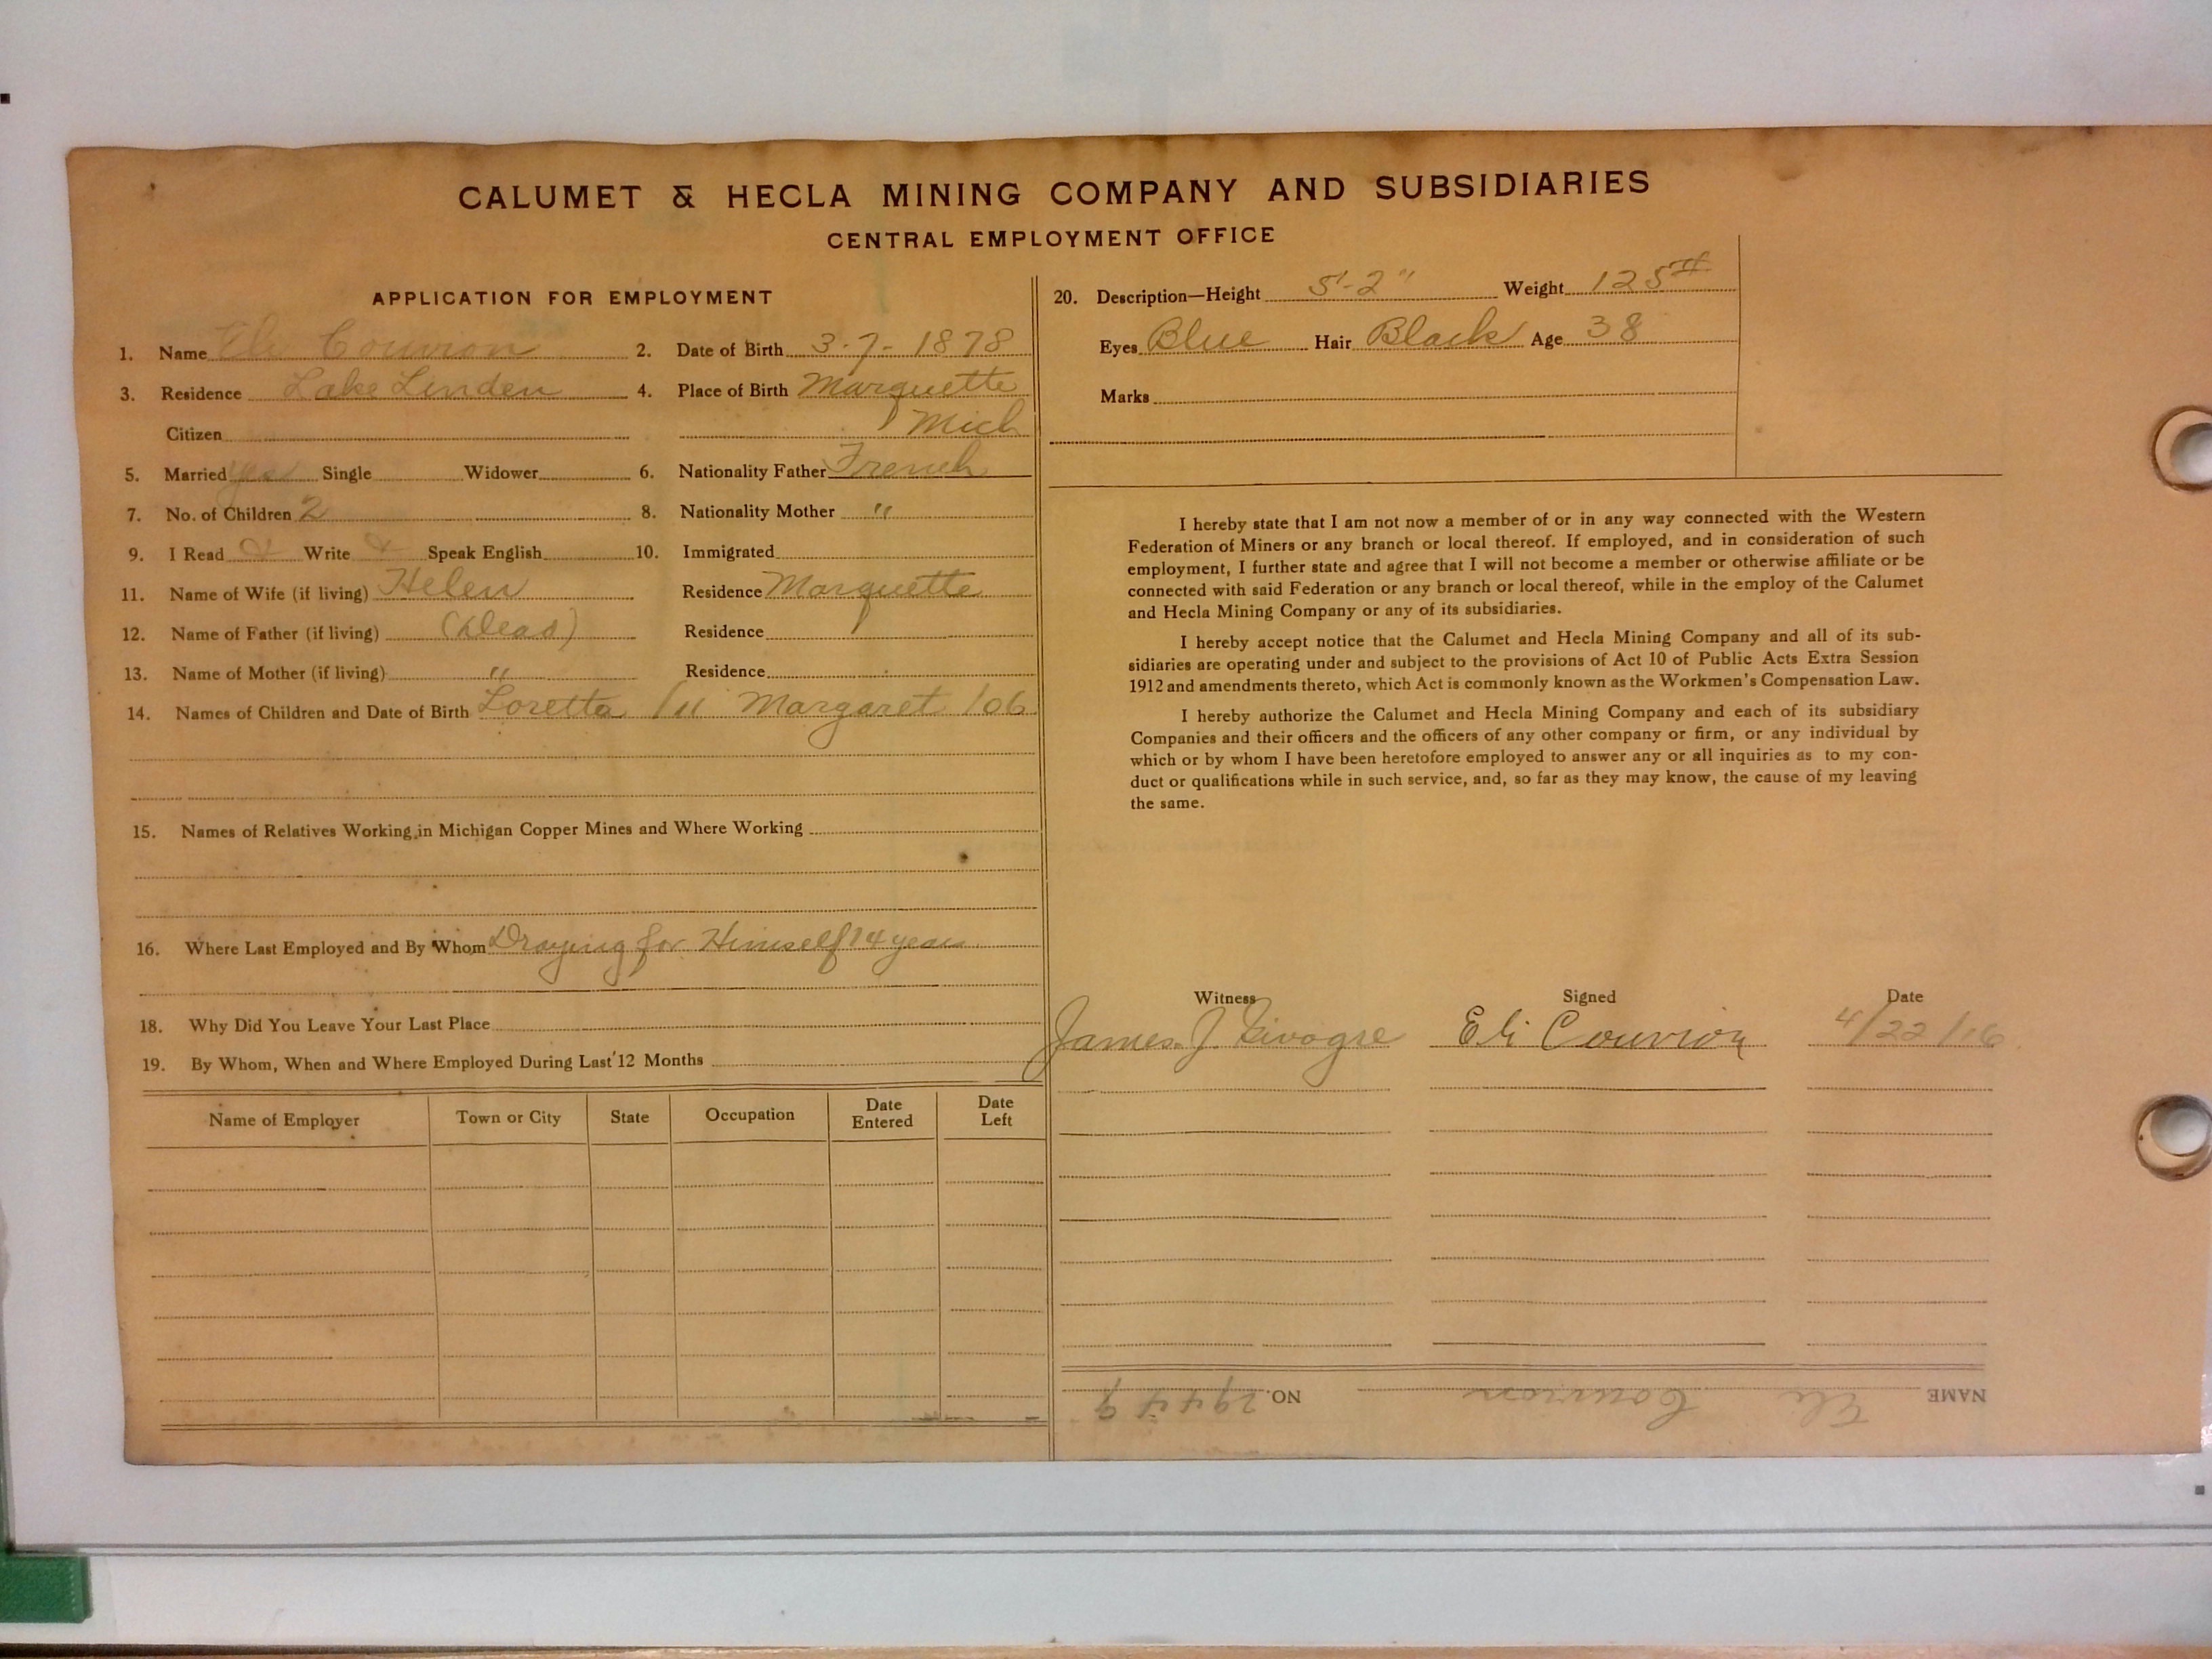 CALUMET & HECLA MINING COMPANY AND SUBSIDIARIES
CENTRAL EMPLOYMENT OFFICE
APPLICATION FOR EMPLOYMENT
1. Name Eli Couvion 2. Date of Birth 3-7-1878
3. Residence Lake Linden 4. Place of Birth Marquette
Citizen Mich
5. Married yes Single Widower 6. Nationality Father French
7. No. of Children 2 8. Nationality Mother "
9. I Read Write Speak English 10. Immigrated
11. Name of Wife (if living) Helen Residence Marquette
12. Name of Father (if living) (Dead) Residence
13. Name of Mother (if living) " Residence
14. Names of Children and Date of Birth Loretta /11 Margaret /06
15. Names of Relatives Working in Michigan Copper Mines and Where Working
16. Where Last Employed and By Whom Draying for Himself 14 years
18. Why Did You Leave Your Last Place
19. By Whom, When and Where Employed During Last 12 Months
Name of Employer Town or City State Occupation Date Entered Date Left
20. Description—Height 5'-2" Weight 125#
Eyes Blue Hair Black Age 38
Marks
I hereby state that I am not now a member of or in any way connected with the Western
Federation of Miners or any branch or local thereof. If employed, and in consideration of such
employment, I further state and agree that I will not become a member or otherwise affiliate or be
connected with said Federation or any branch or local thereof, while in the employ of the Calumet
and Hecla Mining Company or any of its subsidiaries.
I hereby accept notice that the Calumet and Hecla Mining Company and all of its sub-
sidiaries are operating under and subject to the provisions of Act 10 of Public Acts Extra Session
1912 and amendments thereto, which Act is commonly known as the Workmen's Compensation Law.
I hereby authorize the Calumet and Hecla Mining Company and each of its subsidiary
Companies and their officers and the officers of any other company or firm, or any individual by
which or by whom I have been heretofore employed to answer any or all inquiries as to my con-
duct or qualifications while in such service, and, so far as they may know, the cause of my leaving
the same.
Witness Signed Date
James J. Eli Couvion 4/22/16
NAME Eli Couvion NO. 29449